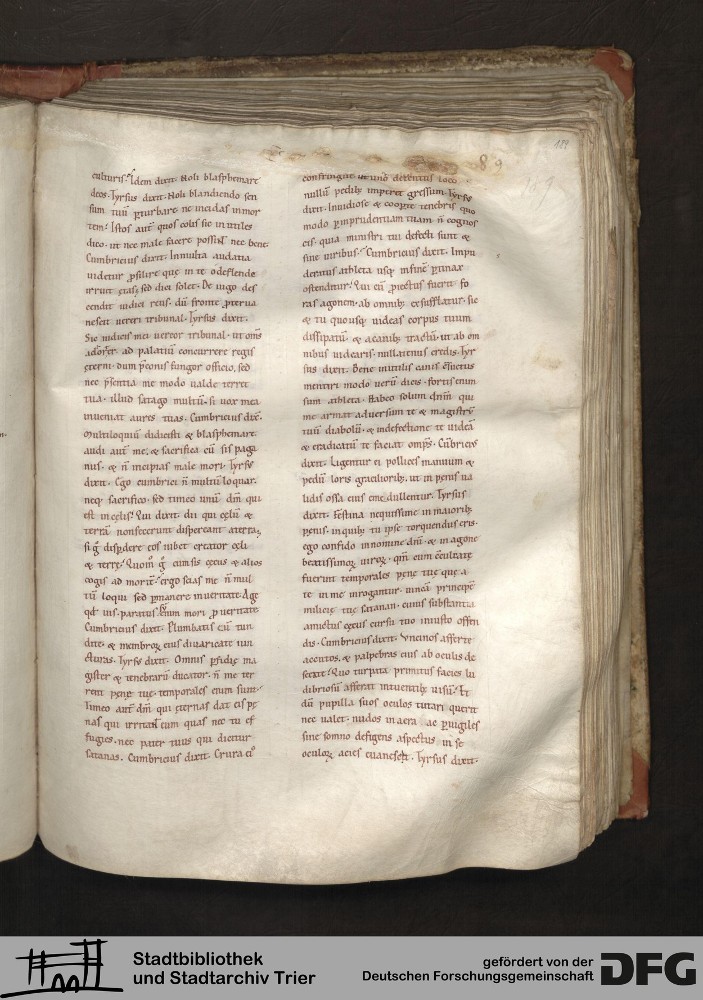 189
89
189
culturis. Idem dixit. Noli blasphemare
deos. Tyrsus dixit. Noli blandiendo sen
sum tuũ ꝑturbare ne incidas in mor
tem. Istos aut̃ quos colis sic inutiles
dico. ut nec male facere possint nec bene.
Cumbricius dixit. In multa audatia
uidetur
irrunt ętas, sed diei solet. De iugo des
cendit iudici reus. dũ fronte ꝓterua
nescit uereri tribunal. Tyrsus dixit.
Sic iudicis mei uereor tribunal. ut om̃s
ad palatiũ concurrere regis
ęterni. dum p̃conis fungor officio, sed
nec p̃sentia me modo ualde terret
tua. illud satago multũ. si uox mea
inueniat aures tuas. Cumbricius dix̃.
Multiloquiũ didicisti & blasphemare.
audi aut̃ me. & sacrifica cũ sis paga
nus. & ñ incipias male mori. Tyrsus
dixit. Ego cumbrici ñ multũ loquar.
neq; sacrifico. sed timeo unũ dm̃ qui
est in cęlis. Qui dixit. dii qui cęlũ &
terrã non fecerunt dispereant a terra,
si g̊ disꝑdere eos iubet creator cęli
& terrę. Quom̊ g̊ cum sis cęcus & alios
cogis ad mortẽ. ergo scias me ñ mul
tũ loqui sed ꝑmanere in ueritate. Age
qd̃ uis. paratus sum enim mori ꝓ ueritate.
Cumbricius dixit. Plumbatis eũ tun
dite. & membrorꝝ eius diuaricate iun
cturas. Tyrsus dixit. Omnis ꝑfidię ma
gister & tenebrarũ ducator. ñ me ter
rent penę tuę. temporales enim sunt.
Timeo aut̃ dm̃ qui ęternas dat eis pę
nas qui irritant eum quas nec tu ef
fugies. nec pater tuus qui dicitur
satanas. Cumbricius dixit. Crura ei᷒
confringite ut uno detentus loco
nullũ pedibꝫ impetret gressum. Tyrsus
dixit. Inuidiose & coopte tenebris quo
modo ꝑ inprudentiam tuam ñ cognos
cis. quia ministri tui defecti sunt &
sine uiribus. Cumbricius dixit. Impu
deratus athleta usq; in finẽ ꝑtinax
ostenditur. Qui cũ ꝓiectus fuerit fo
ras agonem. ab omnibꝫ exsufflatur. sic
& tu quousq; uideas corpus tuum
dissipatũ. & a canibꝫ tractũ. ut ab om
nibus uidearis. nullatenus credis. Tyr
sus dixit. Bene inutilis canis effectus
mentiri modo uerũ dicis. fortis enim
sum athleta. Habeo solum dnm̃ qui
me armat aduersum te & magistrũ
tuũ diabolũ. & in defectione te uideã
& eradicatũ te faciat omp̃s. Cũbricius
dixit. Ligentur ei pollices manuum &
pedũ loris gracilioribꝫ. ut in penis ua
lidis ossa eius
dixit. Festina nequissime in maioribꝫ
penis. in quibꝫ tu ipse torquendus eris.
ego confido in nomine dñi. & in agone
beatissimorꝝ uirorꝝ. qm̃ cum
fuerint temporales penę tuę quę a
te in me inrogantur. uincã principẽ
milicię tuę satanan. cuius substantia
amictus cęcus cursu tuo iniusto offen
dis. Cumbricius dixit. Vncinos afferte
accutos. & palpebras eius ab oculis de
secate. Quo turpata primitus facies. lu
dibriosũ afferat intuentibꝫ uisũ. Et
dũ pupilla suos oculos tutari querit
nec ualet. nudos in aera ac ꝑuigiles
sine somno defigens aspectus in se
oculorꝝ acies euanescat. Tyrsus dixit.
Stadtbibliothek
und Stadtarchiv Trier
gefördert von der
Deutschen Forschungsgemeinschaft
DFG